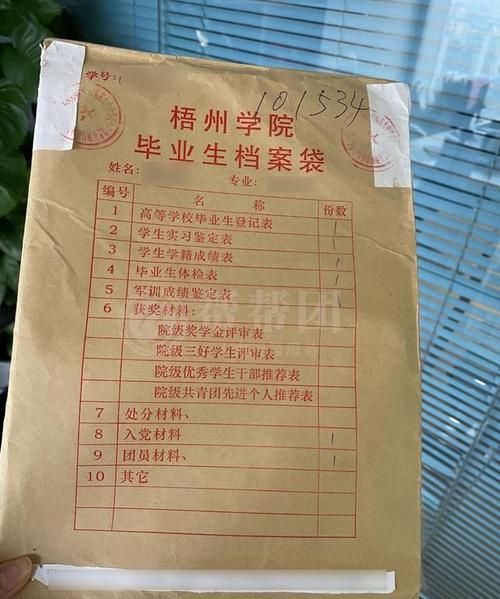 学号:
101534
梧州学院
毕业生档案袋
姓名:
专业:
编号 名 称 份数
1 高等学校毕业生登记表 1
2 学生实习鉴定表 1
3 学生学籍成绩表 1
4 毕业生体检表 1
5 军训成绩鉴定表 1
6 获奖材料:
院级奖学金评审表
院级三好学生评审表
院级优秀学生干部推荐表
院级共青团先进个人推荐表
7 处分材料、
8 入党材料 1
9 团员材料、 1
10 其它